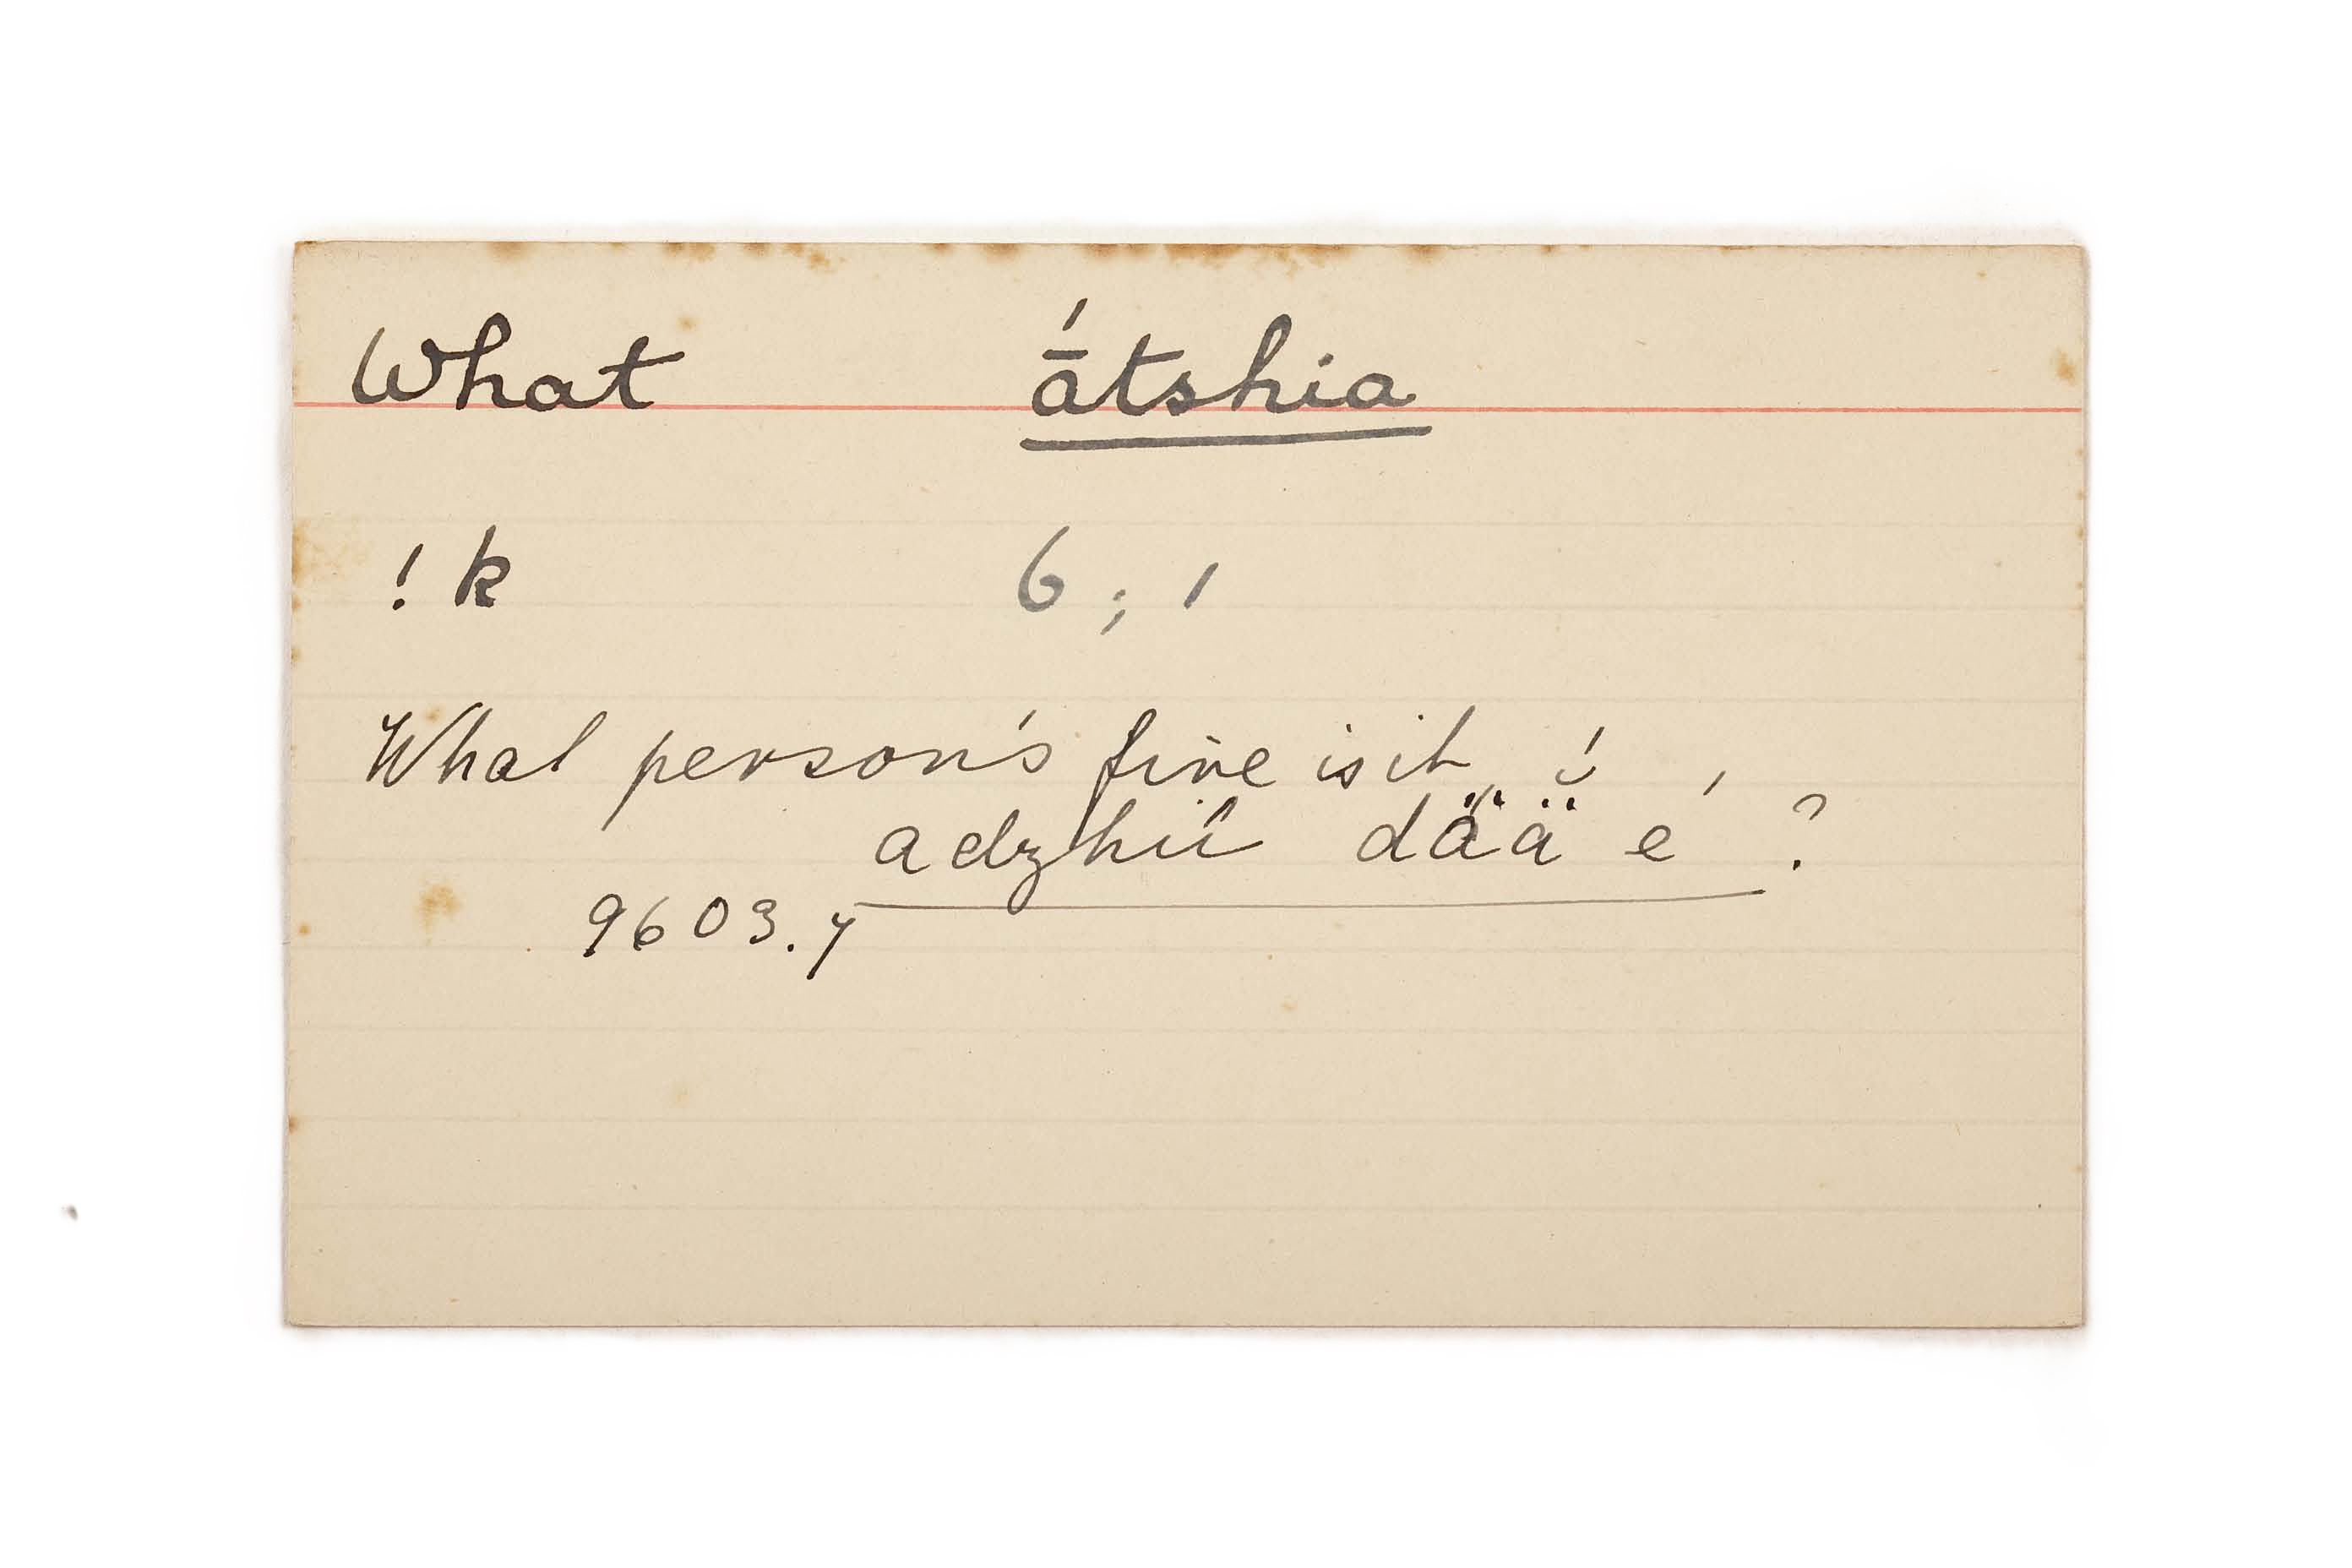 What ā́tshia
!k 6; 1
What person's fire is it
adzhü dä́ä̆́ é ?
9603.7